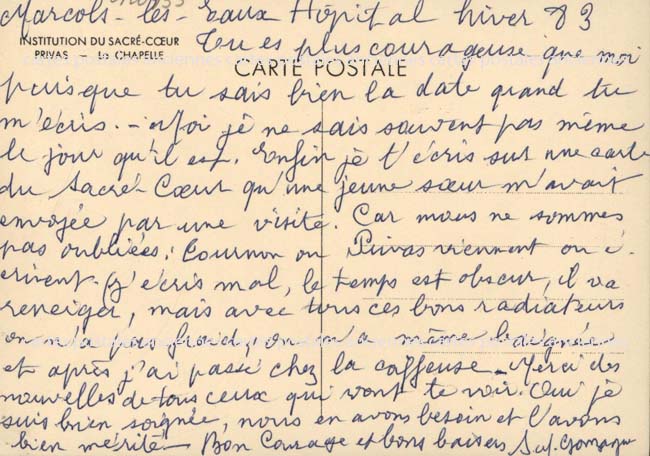 Marcols-les-Eaux Hôpital hiver 83
INSTITUTION DU SACRÉ-CŒUR
PRIVAS - LA CHAPELLE
CARTE POSTALE
Tu es plus courageuse que moi
puisque tu sais bien la date quand tu
m'écris. - Moi je ne sais souvent pas même
le jour qu'il est. Enfin je t'écris sur une carte
du Sacré-Cœur qu'une jeune sœur m'avait
envoyée par une visite. Car nous ne sommes
pas oubliées; Cournon ou Privas viennent ou é-
crivent. J'écris mal, le temps est obscur, il va
reneiger, mais avec tous ces bons radiateurs
on n'a pas froid, on m'a même baignée
et après j'ai passé chez la coiffeuse - Merci des
nouvelles de tous ceux qui vont te voir. Oui je
suis bien soignée, nous en avons besoin et l'avons
bien mérité - Bon Courage et bons baisers